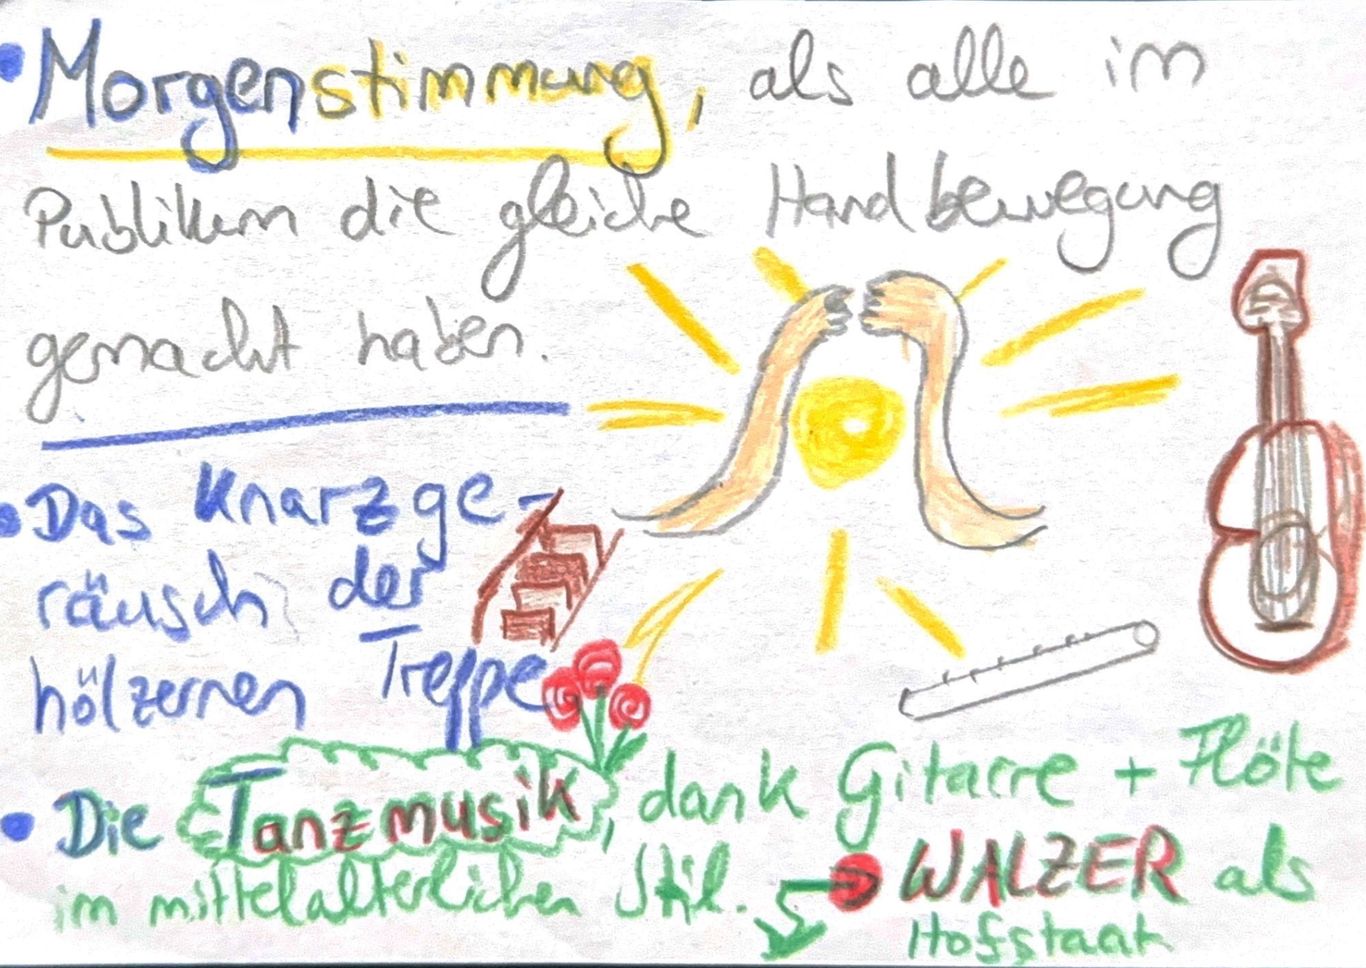 • Morgenstimmung, als alle im
Publikum die gleiche Handbewegung
gemacht haben.
• Das Knarzge-
räusch der
hölzernen Treppe
• Die Tanzmusik, dank Gitarre + Flöte
im mittelalterlichen Stil. WALZER als
Hofstaat